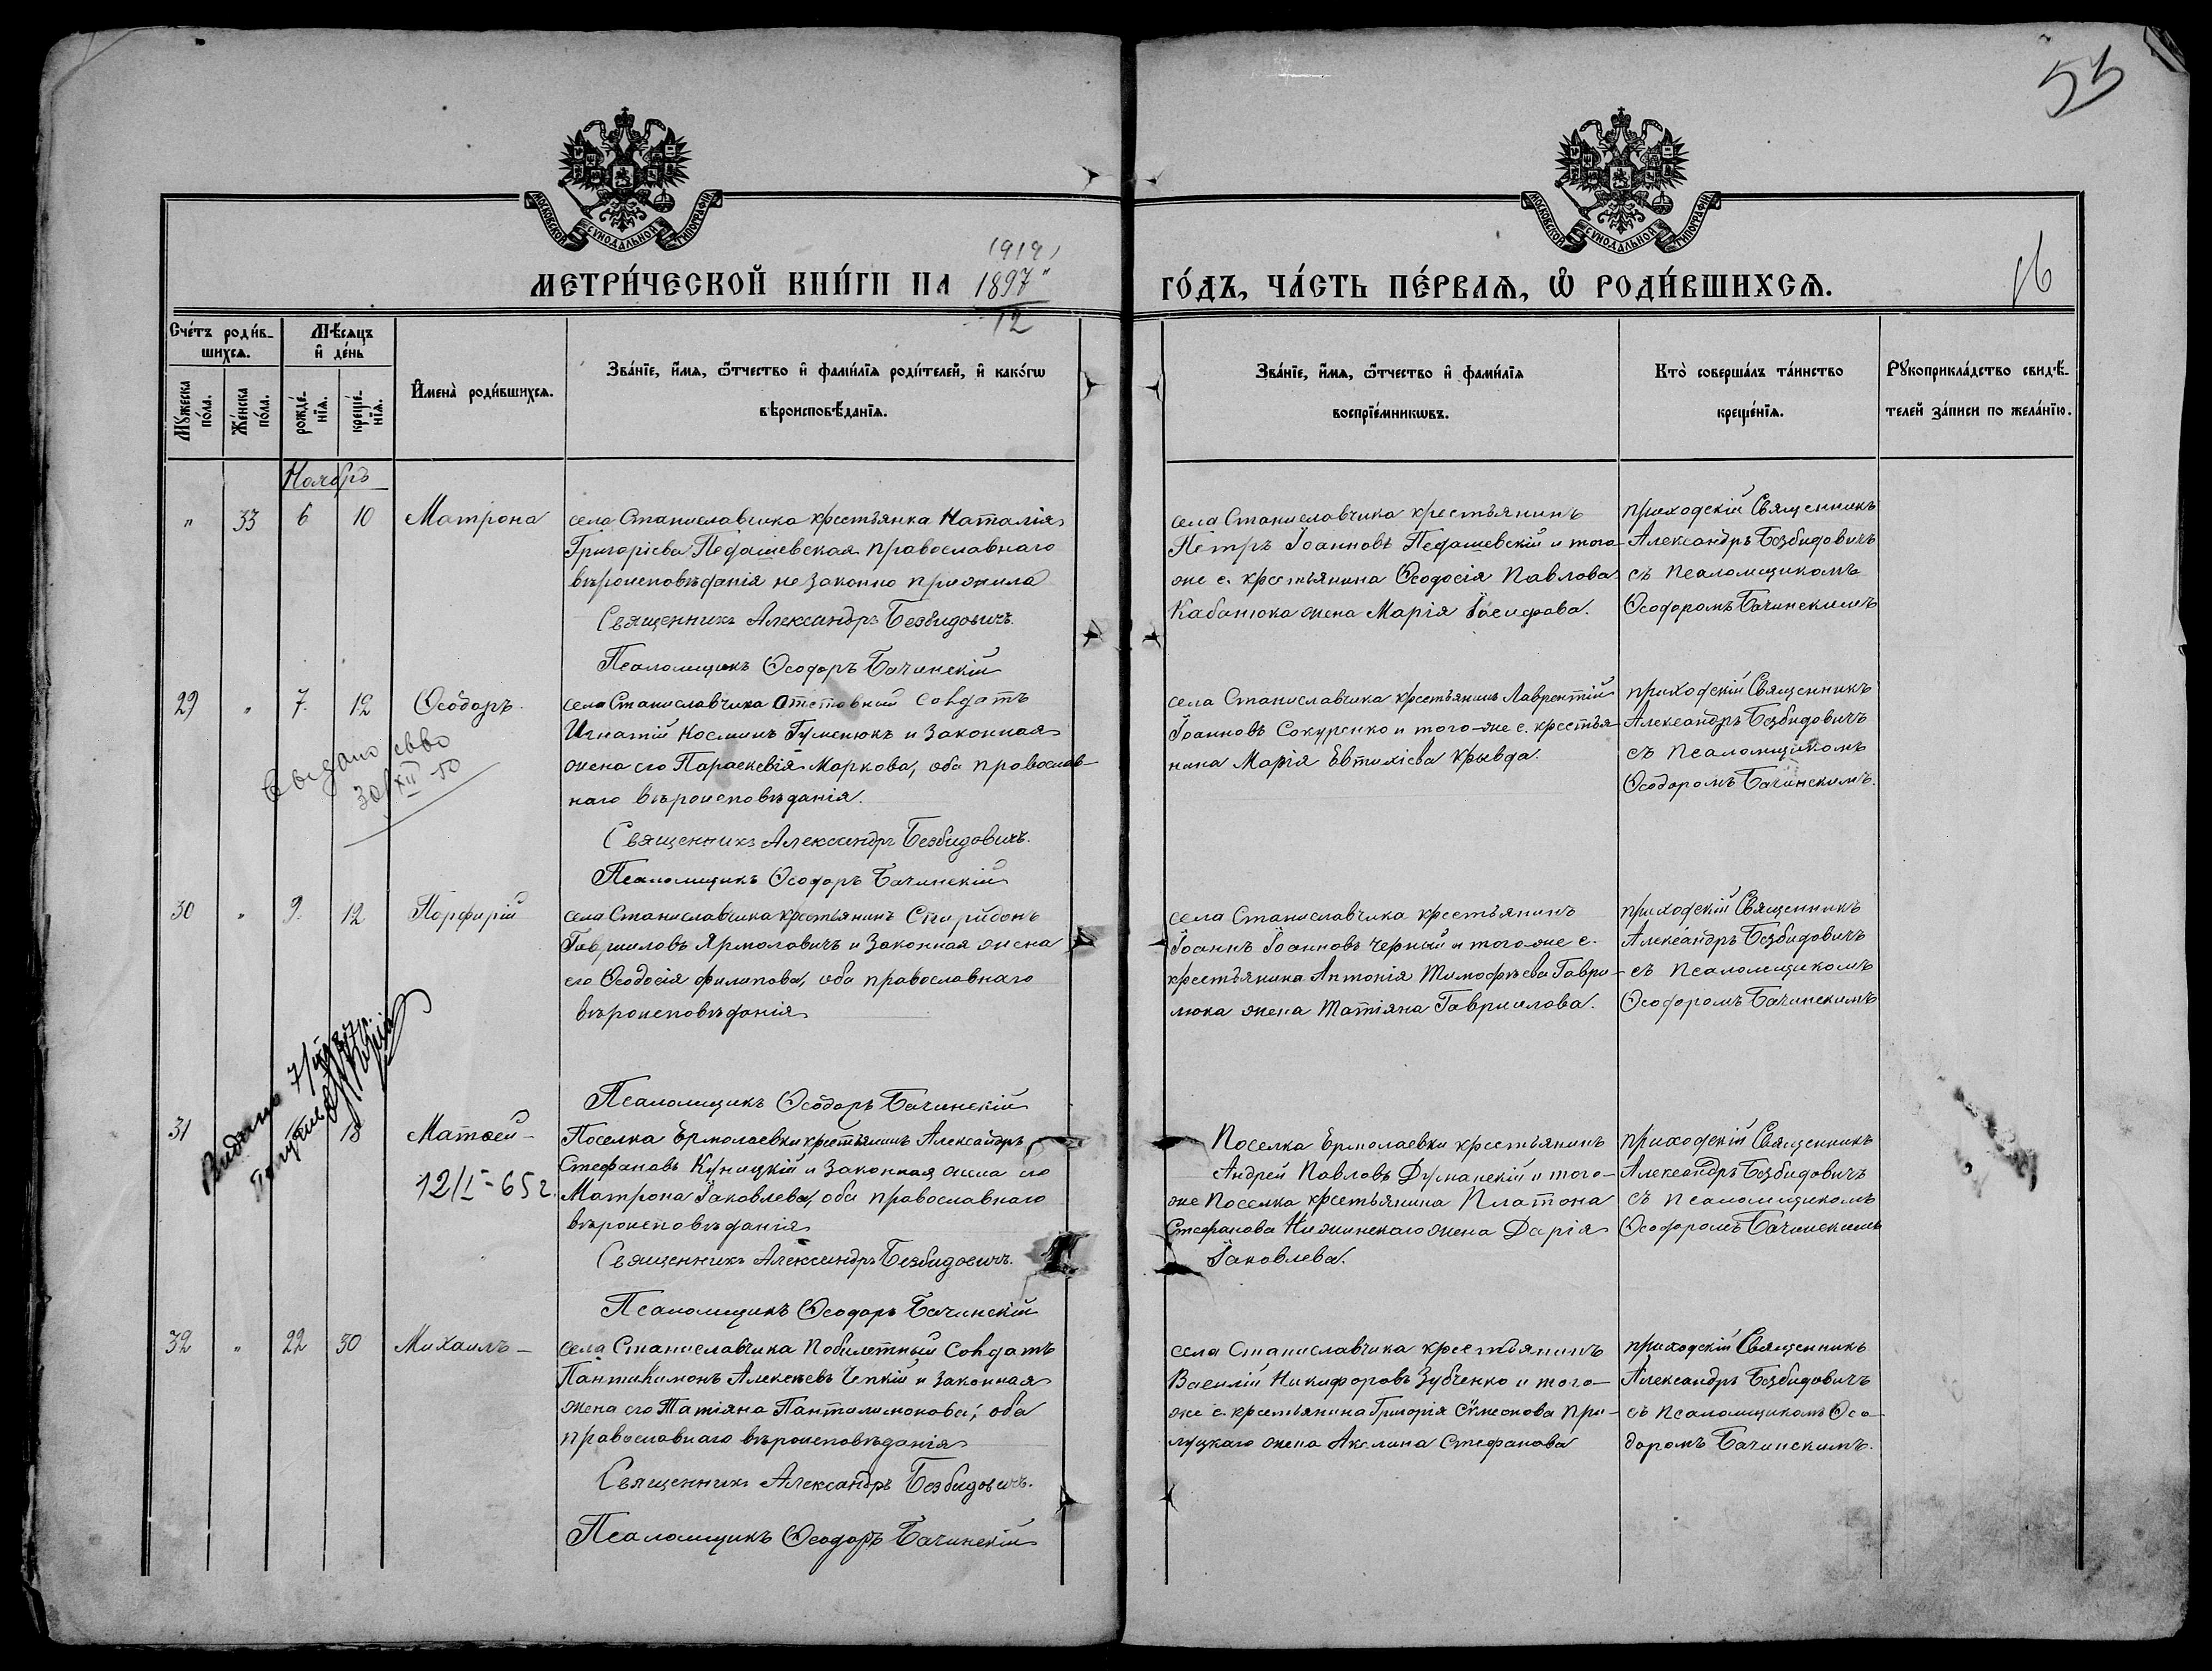 55
МОСКОВСКОЙ СУНОДАЛЬНОЙ ТИПОГРАФІИ
МОСКОВСКОЙ СУНОДАЛЬНОЙ ТИПОГРАФІИ
1919
МЕТРИ́ЧЕСКОЙ КНИ́ГИ НА 1897
12
ГО́ДЪ, ЧА́СТЬ ПЕ́РВАѦ, Ѡ РОДИ́ВШИХСѦ.
16
Сче́тъ роди́в-
шихсѧ.
Мꙋ́жеска
по́ла.
Же́нска
по́ла.
Мѣ́сяцъ
и҆ де́нь
рожде́-
нїѧ.
креще́-
нїѧ.
И҆мена̀ роди́вшихсѧ.
Зва́нїе, и҆́мѧ, ѻ҆́тчество и҆ фами́лїѧ роди́телей, и҆ како́гѡ
вѣроисповѣ́данїѧ.
Зва́нїе, и҆́мѧ, ѻ҆́тчество и҆ фами́лїѧ
воспрїе́мникѡвъ.
Кто̀ соверша́лъ та́инство
креще́нїѧ.
Рꙋкоприкла́дство свидѣ́-
телей за́писи по жела́нїю.
Ноябрь
" 33 6 10 Матрона
села Станиславчика крестьянка Наталія
Григоріева Педашевская православнаго
вѣроисповѣданія не законно прижила
Священникъ Александръ Безбидовичъ.
Псаломщикъ Ѳеодоръ Бачинскій
села Станиславчика крестьянинъ
Петръ Іоанновъ Педашевскій и того-
же с. крестьянина Ѳеодосія Павлова
Кабанюка жена Марія Іосифова.
приходскій Священникъ
Александръ Безбидовичъ
съ псаломщикомъ
Ѳеодоромъ Бачинскимъ
29 " 7. 12 Ѳеодоръ.
Выдано свво
30/XII-50
села Станиславчика отставный солдатъ
Игнатій Косминъ Гуменюкъ и законная
жена его Параскевія Маркова, оба православ-
наго вѣроисповѣданія.
Священникъ Александръ Безбидовичъ.
Псаломщикъ Ѳеодоръ Бачинскій
села Станиславчика крестьянинъ Лаврентій
Іоанновъ Сокуренко и того-же с. крестья-
нина Марія Евтихіева Крывда.
приходскій Священникъ
Александръ Безбидовичъ
съ псаломщикомъ
Ѳеодоромъ Бачинскимъ.
30 " 9. 12 Порфирій
села Станиславчика крестьянинъ Спиридонъ
Гавриловъ Ярмоловичъ и законная жена
его Ѳеодосія Филипова, оба православнаго
вѣроисповѣданія
Псаломщикъ Ѳеодоръ Бачинскій
села Станиславчика крестьянинъ
Іоаннъ Іоанновъ Черный и того-же с.
крестьянина Антонія Тимофѣева Гаври-
люка жена Татіяна Гавриилова.
приходскій Священникъ
Александръ Безбидовичъ
съ псаломщикомъ
Ѳеодоромъ Бачинскимъ
Видано
31 18 Матвей-
12/I-65г.
Поселка Ермолаевки крестьянинъ Александръ
Стефановъ Куницкій и законная жена его
Матрона Іаковлева, оба православнаго
вѣроисповѣданія
Священникъ Александръ Безбидовичъ.
Псаломщикъ Ѳеодоръ Бачинскій
Поселка Ермолаевки крестьянинъ
Андрей Павловъ Думанскій и того-
же Поселка крестьянина Платона
Стефанова Нижинскаго жена Дарія
Іаковлева.
приходскій Священникъ
Александръ Безбидовичъ
съ псаломщикомъ
Ѳеодоромъ Бачинскимъ
32 " 22 30 Михаилъ-
села Станиславчика Побилетный солдатъ
Пантилимонъ Алексѣевъ Чепкій и законная
жена его Татіяна Пантилимонова, оба
православнаго вѣроисповѣданія
Священникъ Александръ Безбидовичъ.
Псаломщикъ Ѳеодоръ Бачинскій
села Станиславчика крестьянинъ
Василій Никифоровъ Зубченко и того-
же с. крестьянина Григорія Сѵмеонова При-
луцкаго жена Акилина Стефанова
приходскій Священникъ
Александръ Безбидовичъ
съ псаломщикомъ Ѳео-
доромъ Бачинскимъ.